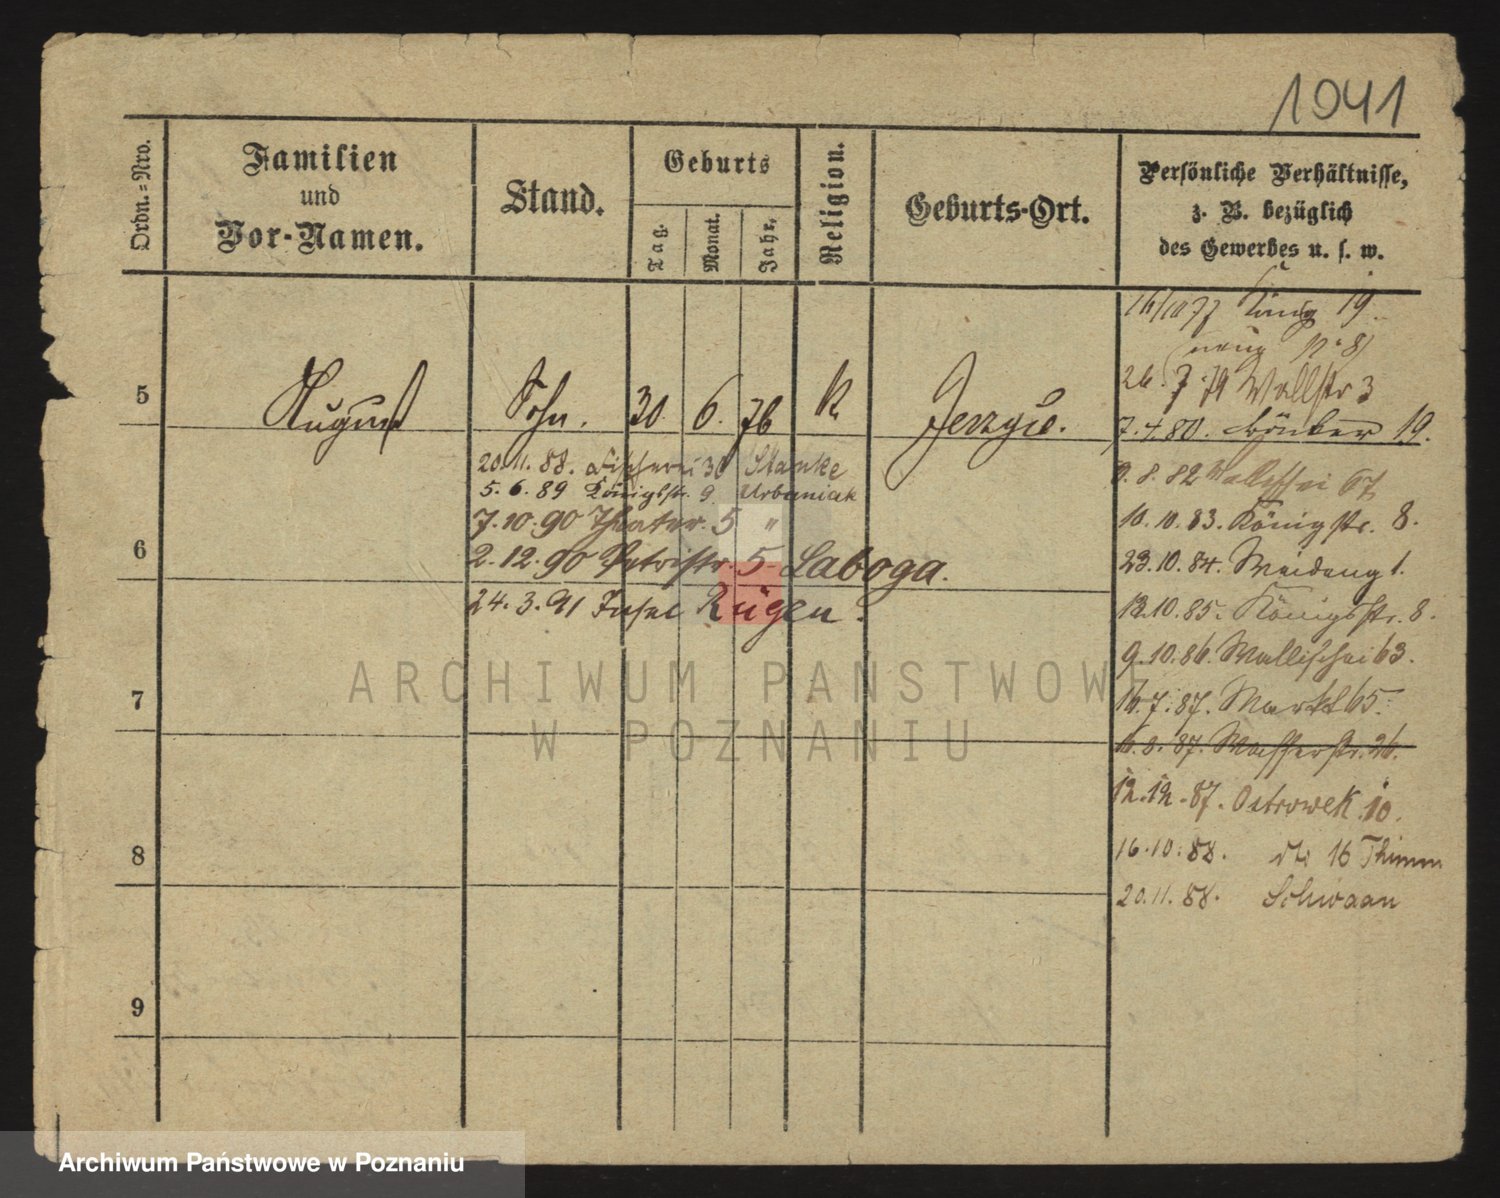 1041
Ordn.=Nro.
Familien
und
Vor-Namen.
Stand.
Geburts
Tag.
Monat.
Jahr.
Religion.
Geburts-Ort.
Persönliche Verhältnisse,
z. B. bezüglich
des Gewerbes u. s. w.
5 August Sohn. 30 6. 76 k
20.11.88. Fischerei 30 Stanke
5.6.89 Königsstr. 9 Urbaniak
7.10.90 Theater. 5 "
2.12.90 Petristr. 5 Laboga.
24.3.91 Insel Rügen.
6
7
8
9
König 19.
26.7.79 Wallstr 3
7.4.80. 19.
8.82 Wallischei 67
10.10.83. Königstr. 8.
23.10.84. 1.
13.10.85. Königsstr. 8.
9.10.86. Wallischei 63.
16.7.87. Markt 65.
87. Wasserstr. 26.
12.12.87. Ostrowek 10.
16.10.88. 16 Thimm
20.11.88. Schwaan
ARCHIWUM PAŃSTWOWE
W POZNANIU
Archiwum Państwowe w Poznaniu